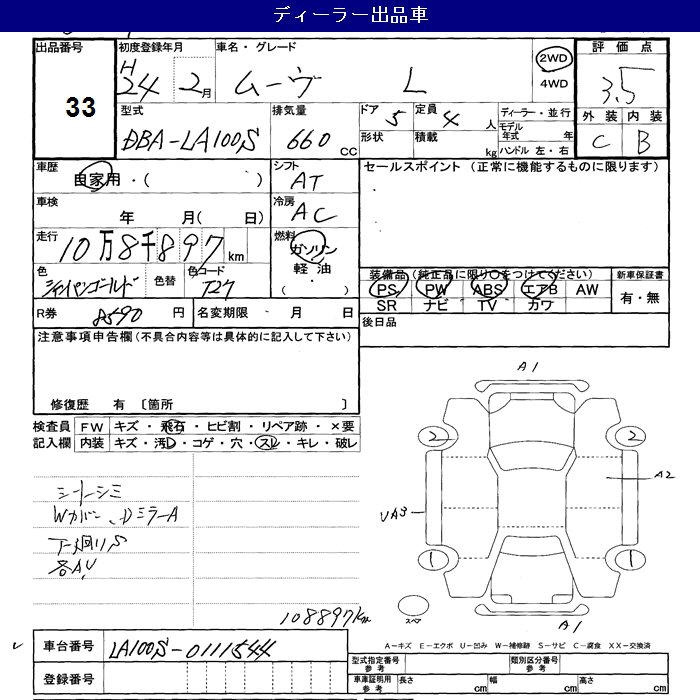 ディーラー出品車
出品番号 初度登録年月 車名・グレード 評価点
33
H24 2月 ムーヴ L 2WD 4WD 3.5
型式 排気量 ドア 定員 ディーラー・並行 外装 内装
DBA-LA100S 660 CC 5 4 人 モデル年式 年 C B
形状 積載 kg ハンドル 左・右
車歴 シフト セールスポイント (正常に機能するものに限ります)
自家用・( ) AT
車検 冷房
年 月( 日) AC
走行 燃料
10万8千897 km ガソリン
軽油
( ・ )
色 色替 色コード
シャンパンゴールド T27
装備品 (純正品に限り○をつけてください) 新車保証書
PS PW ABS エアB AW 有・無
SR ナビ TV カワ
R券 8590 円 名変期限 ・ 月 日
後日品
注意事項申告欄 (不具合内容等は具体的に記入して下さい)
修復歴 有 〔箇所 〕
検査員 FW キズ・飛石・ヒビ割・リペア跡・×要
記入欄 内装 キズ・汚レ・コゲ・穴・スレ・キレ・破レ
シートシミ
Wカバー、DミラーA
下廻りS
各A,U
A1
2 2
A2
UA3
1 1
スペア
A1
108897km
A-キズ E-エクボ U-凹み W-補修跡 S-サビ C-腐食 XX-交換済
車台番号 LA100S-0111544
登録番号
型式指定番号 参考 類別区分番号 参考
車庫証明用 参考 長さ cm 幅 cm 高さ cm